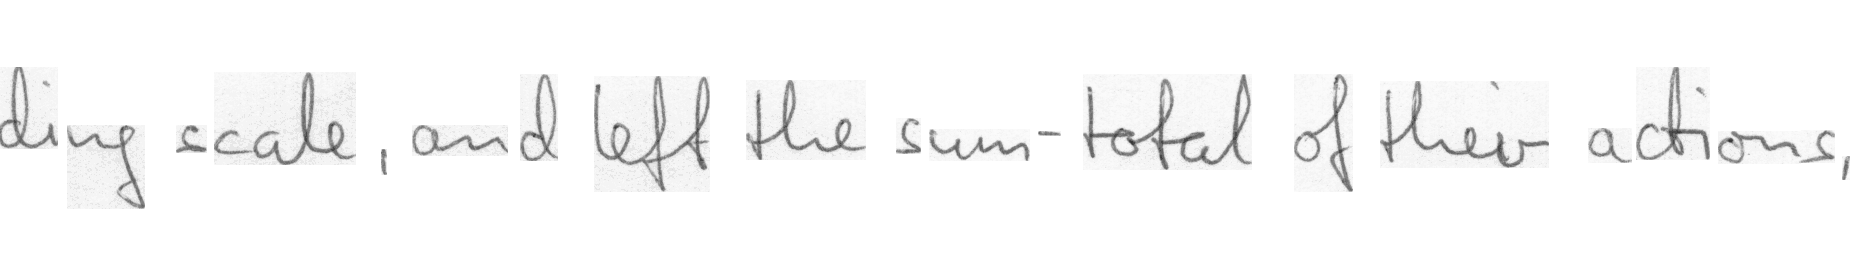 ding scale, and left the sum-total of their actions,